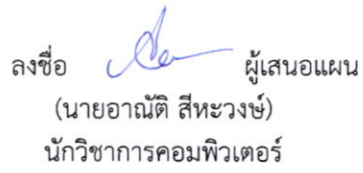 ลงชื่อ ผู้เสนอแผน
(นายอาณัติ สีหะวงษ์)
นักวิชาการคอมพิวเตอร์